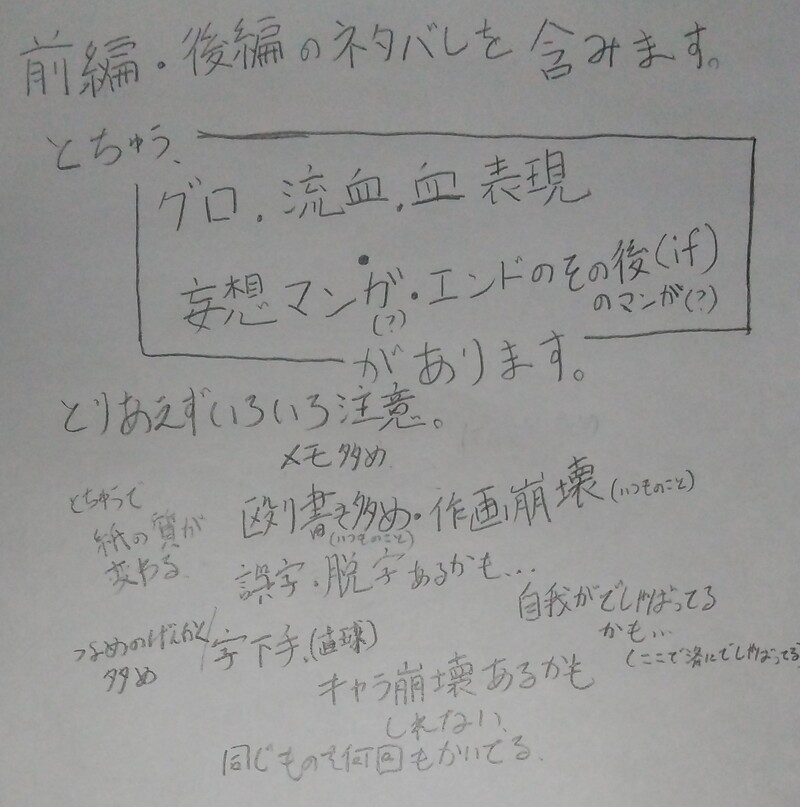 前編・後編のネタバレを含みます。
とちゅう、
グロ・流血・血表現
妄想マンガ・エンドのその後(if)
(?)
のマンガ(?)
があります。
とりあえずいろいろ注意。
メモ多め
とちゅうで
紙の質が
変わる
殴り書き多め・作画崩壊(いつものこと)
(いつものこと)
誤字・脱字あるかも…
自我がでしゃばってる
かも…
(ここで既にでしゃばってる)
多め
字下手、(直球)
キャラ崩壊あるかも
しれない、
同じものを何回もかいてる、